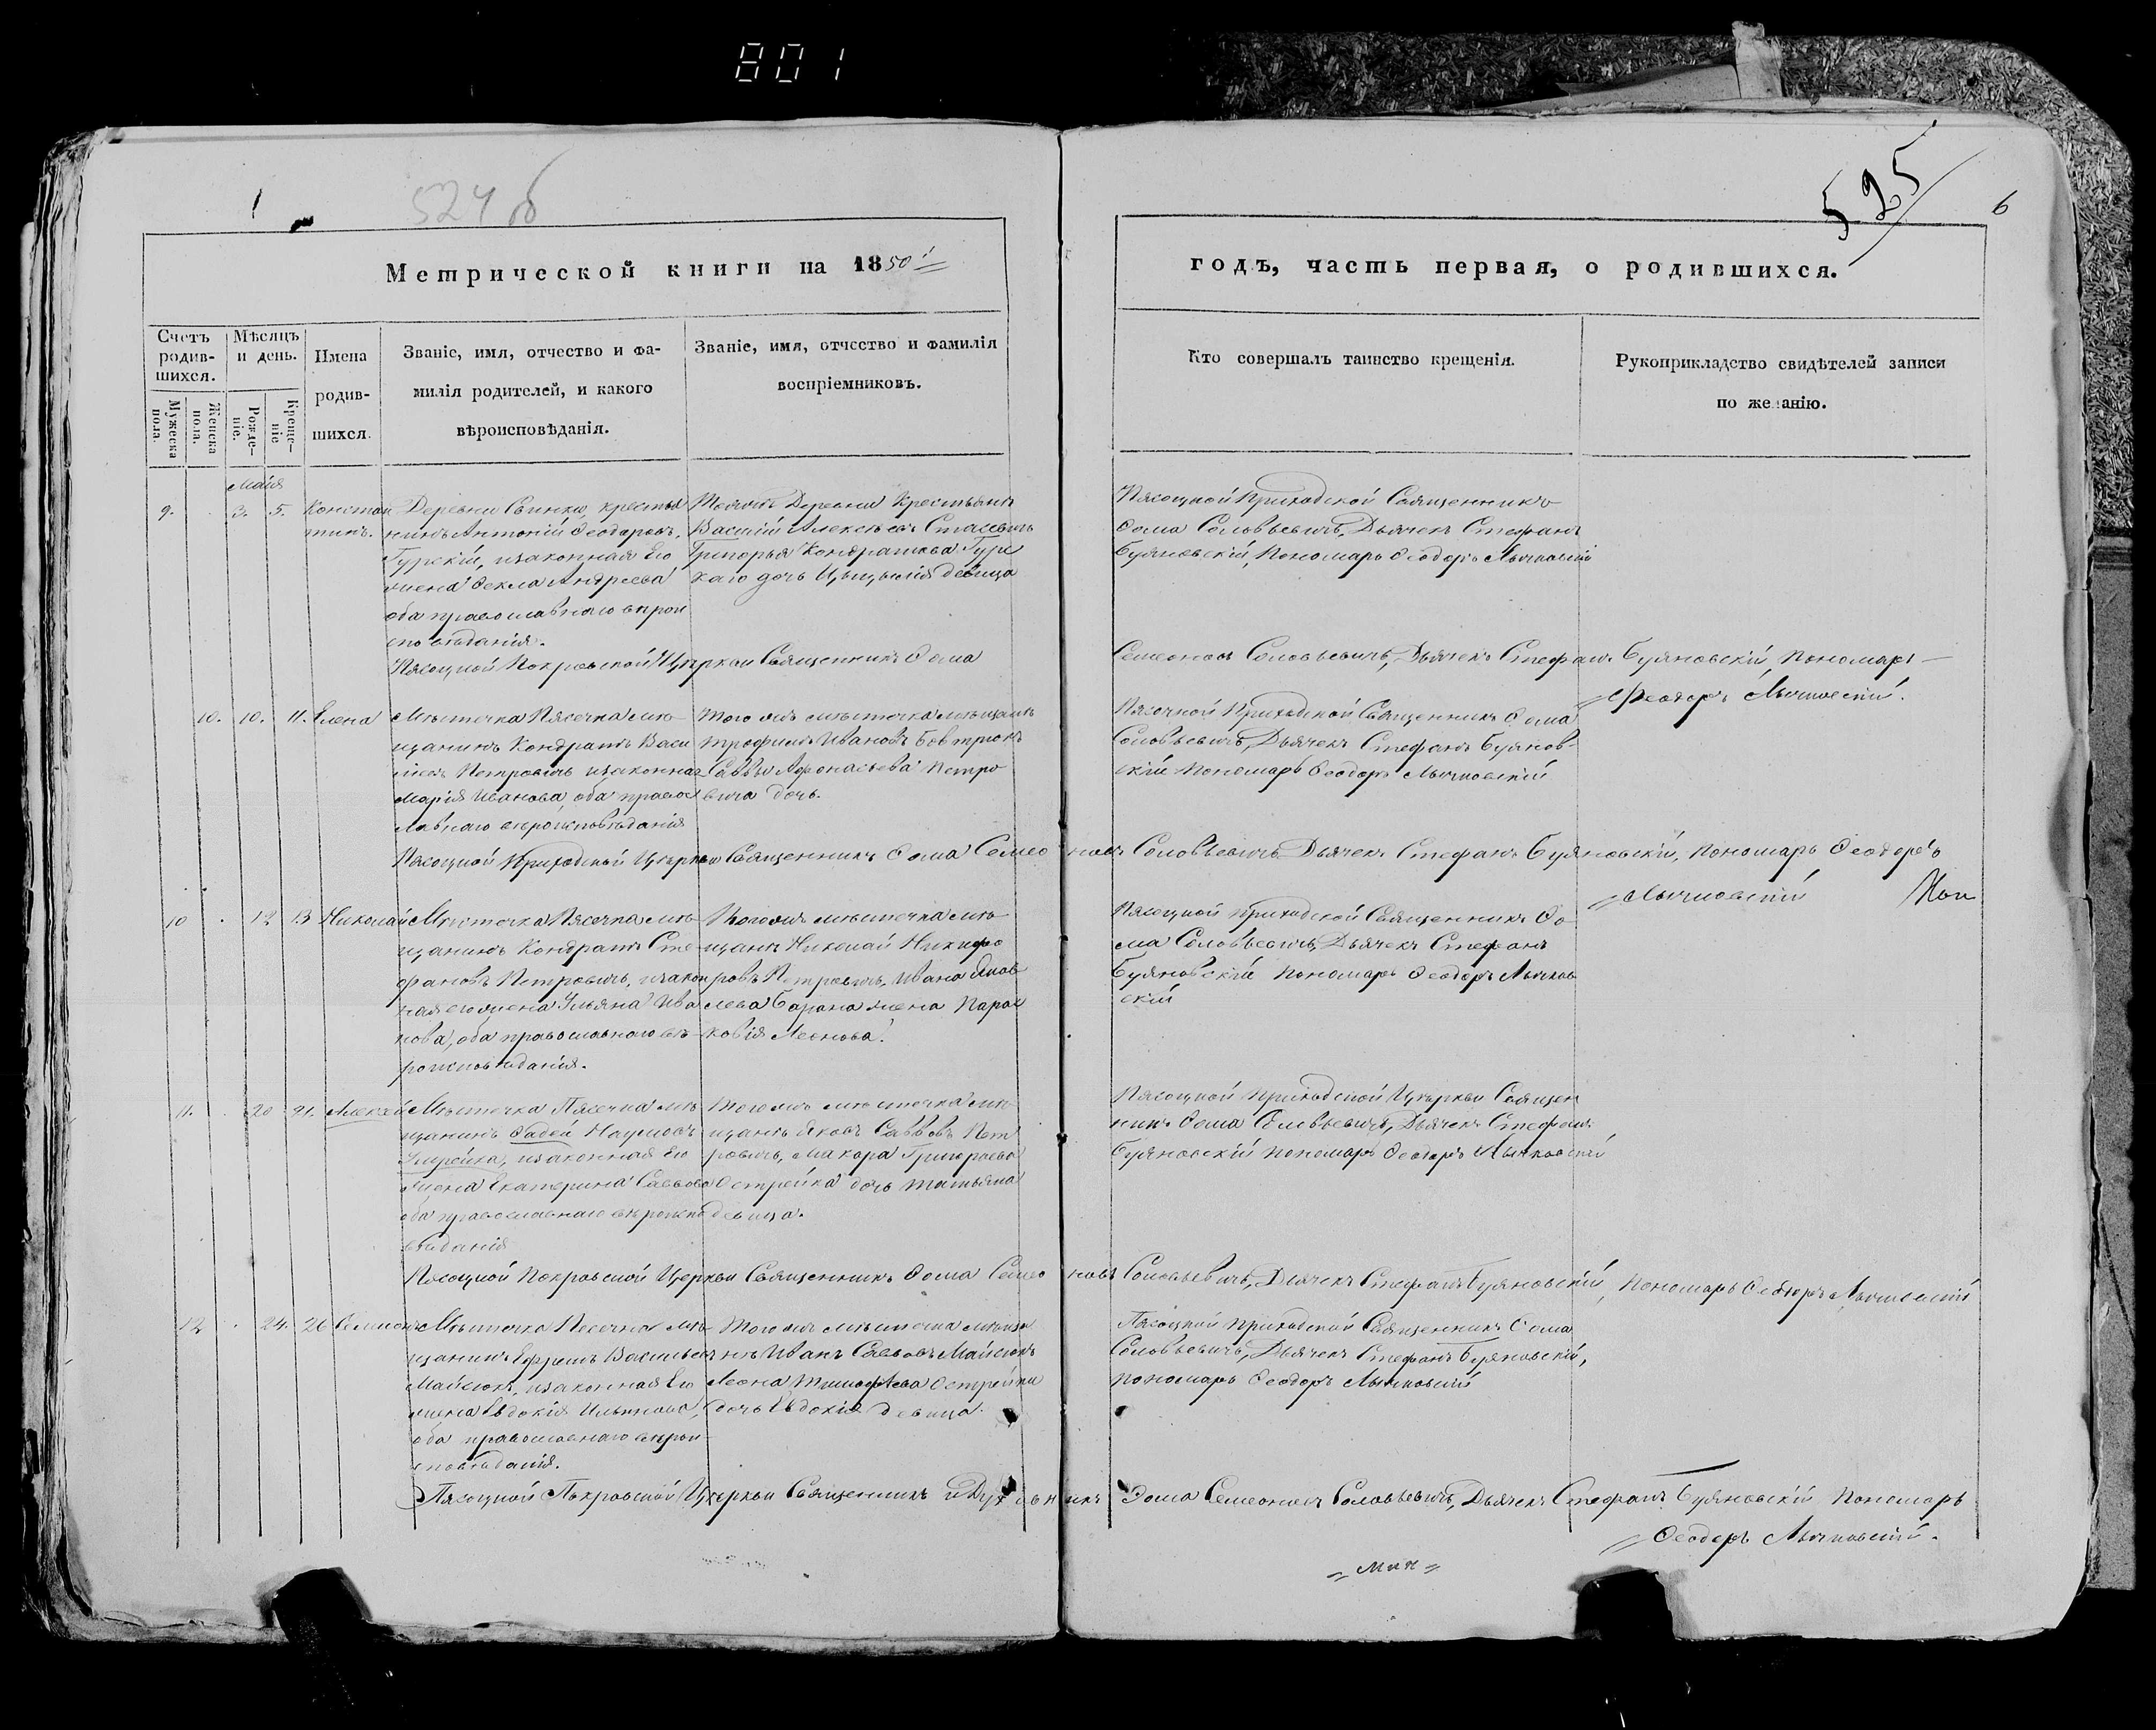 801
524 об
525
6
Метрической книги на 1850й
годъ, часть первая, о родившихся.
Счетъ родив-шихся.
Мужеска пола.
Женска пола.
Мѣсяцъ и день.
Рожде-ніе.
Креще-ніе
Имена
родив-
шихся.
Званіе, имя, отчество и фа-
милія родителей, и какого
вѣроисповѣданія.
Званіе, имя, отчество и фамилія
воспріемниковъ.
Кто совершалъ таинство крещенія.
Рукоприкладство свидѣтелей записи
по желанію.
Маія
9. 3. 5.
Констан
тинъ.
Деревни Свинки, крестья
нинъ Антоній Ѳеодоровъ,
Гурскій, изаконная Его
жена Ѳекла Андреева
оба православнаго вѣрои
сповѣданія.
Тойжъ Деревни Крестьянъ
Василій Алексѣевъ Стасевичъ
Григорья Кондратова Гурс
каго дочь Цыцылія девица
Пясоцкой Приходской Священникъ
Ѳома Соловьевичъ, Дьячекъ Стефанъ
Буяновскій, Пономарь Ѳеодоръ Лычковскій
Пясоцкой Покровской Цѣркви Священникъ Ѳома
Семеоновъ Соловьевичъ, Дьячекъ Стефанъ Буяновскій, Пономарь
Феодоръ Лычковскій.
10. 10. 11. Елена
Мѣстечка Пясечна мѣ-
щанинъ Кондратъ Васи
лѣевъ Петровичъ изаконная
Марія Иванова, оба правос
лавнаго вѣроисповѣданія
Того жъ мѣстечка мѣщанъ
Трофимъ Ивановъ Бовтрюкъ
Саввы Афонасьева Петро
вича дочь.
Пясочной Приходской Священникъ Ѳома
Соловьевичъ, Дьячекъ Стефанъ Буянов-
скій Пономарь Ѳеодоръ Лычковскій
Пясоцкой Приходской Цѣркви Священникъ Ѳома Семеоновъ Соловьевичъ Дьячекъ Стефанъ Буяновскій, Пономарь Ѳеодоръ
Лычковскій
10 12 13 Николай
Мѣстечка Пясечна мѣ-
щанинъ Кондратъ Сте-
фановъ Петровичъ, изакон
ная его жена Ульяна Ива
нова, оба православнаго вѣ-
роисповѣданія.
Того жъ мѣстечка мѣ-
щанъ Николай Никифо
ровъ Петровичъ, Ивана Яков
лева Барана жена Парас
ковія Леонова.
Пясоцкой приходской Священникъ Ѳо-
ма Соловьевичъ, Дьячекъ Стефанъ
Буяновскій Пономарь Ѳеодоръ Лычков
скій
11. 20 21. Алексей
Мѣстечка Пясечна мѣ
щанинъ Фадей Наумовъ
изаконная Его
жена Екатерина Саввова
оба православнаго вѣроиспо
вѣданія
Того жъ мѣстечка мѣ-
щанъ Яковъ Саввовъ Пет
ровичъ, Макара Григорьева
Острейка дочь Татьяна
девица.
Пясоцкой приходской Цѣркви Священ
никъ Ѳома Соловьевичъ, Дьячекъ Стефанъ
Буяновскій Пономарь Ѳеодоръ Лычковскій
Пясоцкой Покровской Церкви Священникъ Ѳома Семеоновъ Соловьевичъ, Дьячекъ Стефанъ Буяновскій, Пономарь Ѳеодоръ Лычковскій
12 24. 26 Семионъ
Мѣстечка Песечна мѣ-
щанинъ Ефремъ Васильевъ
Майсюкъ, изаконная Его
жена Евдокія Ильинова,
оба православнаго вѣрои-
сповѣданія.
Того жъ мѣстечка мѣща
нъ Иванъ Саввовъ Майсюкъ
Леона Тимофѣева Острейки
дочь Евдокія девица.
Пясоцкой приходской Священникъ Ѳома
Соловьевичъ, Дьячекъ Стефанъ Буяновскій,
пономарь Ѳеодоръ Лычковскій
Пясоцкой Покровской Цѣркви Священникъ и Духовникъ Ѳома Семеоновъ Соловьевичъ, Дьячекъ Стефанъ Буяновскій Пономарь
Ѳеодоръ Лычковскій.